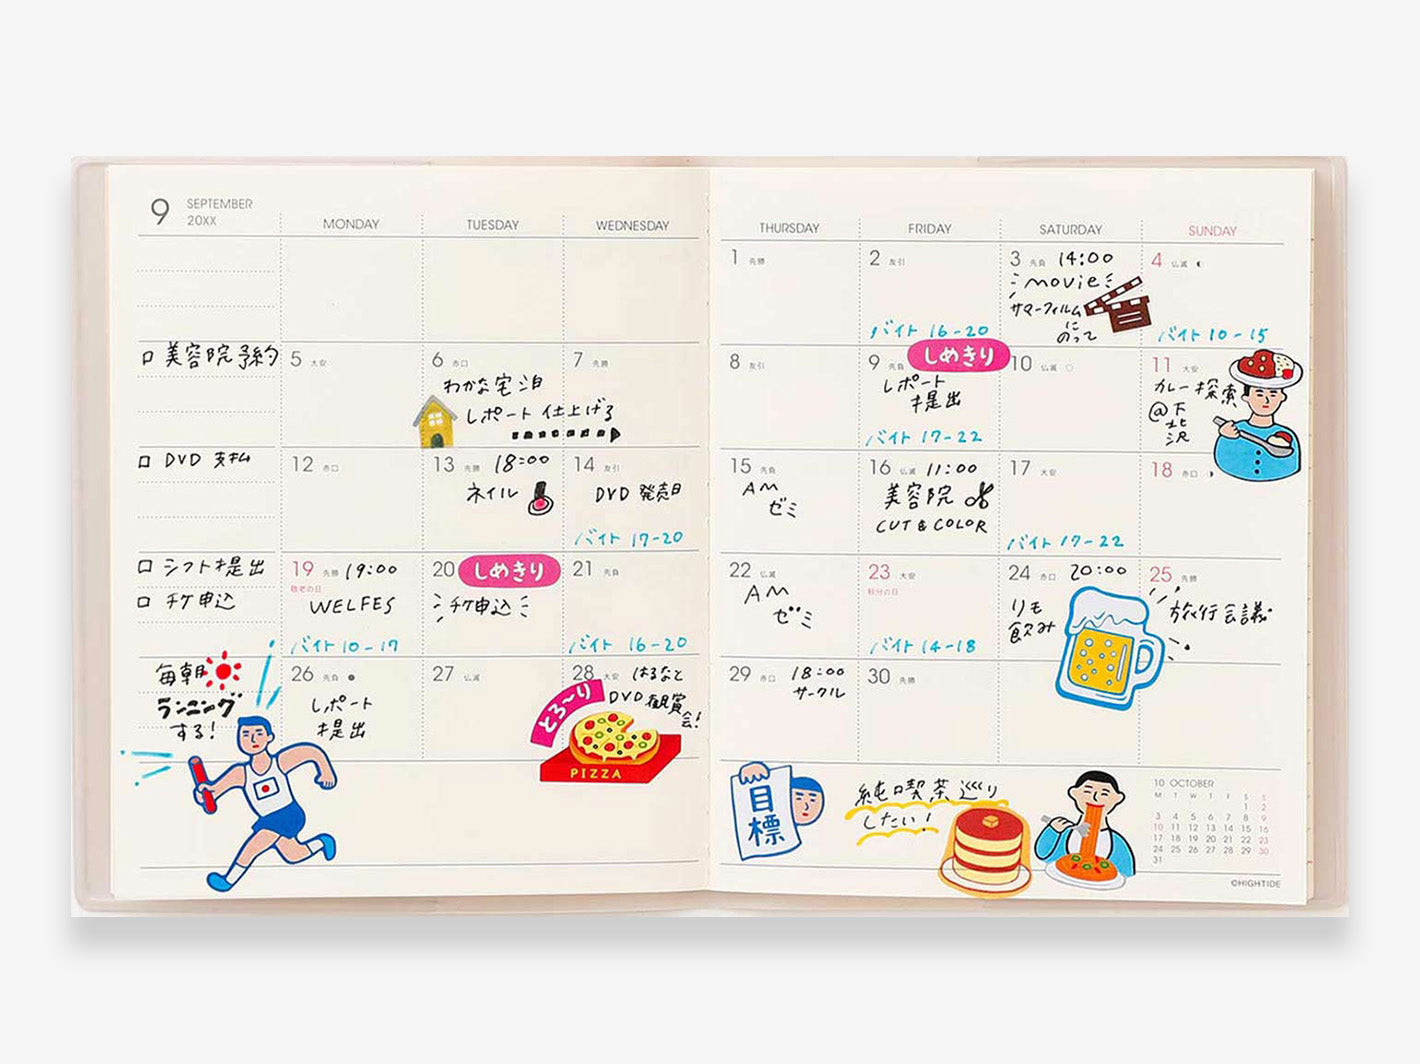 9 SEPTEMBER
20XX
MONDAY TUESDAY WEDNESDAY
□ 美容院予約
□ DVD 支払
□ シフト提出
□ チケ申込
毎朝
ランニング
する!
5 大安
6 赤口
わかな宅泊
レポート 仕上げる
7 先勝
12 赤口
13 先勝 18:00
ネイル
14 友引
DVD 発売日
バイト 17-20
19 先勝 19:00
敬老の日
WELFES
バイト 10-17
20 しめきり
チケ申込
21 先負
バイト 16-20
26 先負
レポート
提出
27 仏滅
28 大安 はるなと
DVD 観賞
会!
とろ〜り
PIZZA
THURSDAY FRIDAY SATURDAY SUNDAY
1 先勝
2 友引
バイト 16-20
3 先負 14:00
movie
サマーフィルム
に
のって
4 仏滅
バイト 10-15
8 友引
9 先負 しめきり
レポート
提出
バイト 17-22
10 仏滅
11 大安
カレー探索
@下
北
沢
15 先負
AM
ゼミ
16 仏滅 11:00
美容院
CUT & COLOR
17 大安
バイト 17-22
18 赤口
22 仏滅
AM
ゼミ
23 大安
秋分の日
バイト 14-18
24 赤口 20:00
リモ
飲み
25 先勝
旅行会議
29 赤口 18:00
サークル
30 先勝
目標
純喫茶巡り
したい!
10 OCTOBER
M T W T F S S
1 2
3 4 5 6 7 8 9
10 11 12 13 14 15 16
17 18 19 20 21 22 23
24 25 26 27 28 29 30
31
©HIGHTIDE